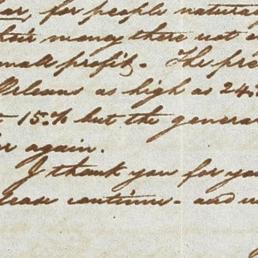 for people natura
their money there not
small profit. The pre
Orleans as high as 24
15% but the genera
again.
I thank you for yo
lease continue - and